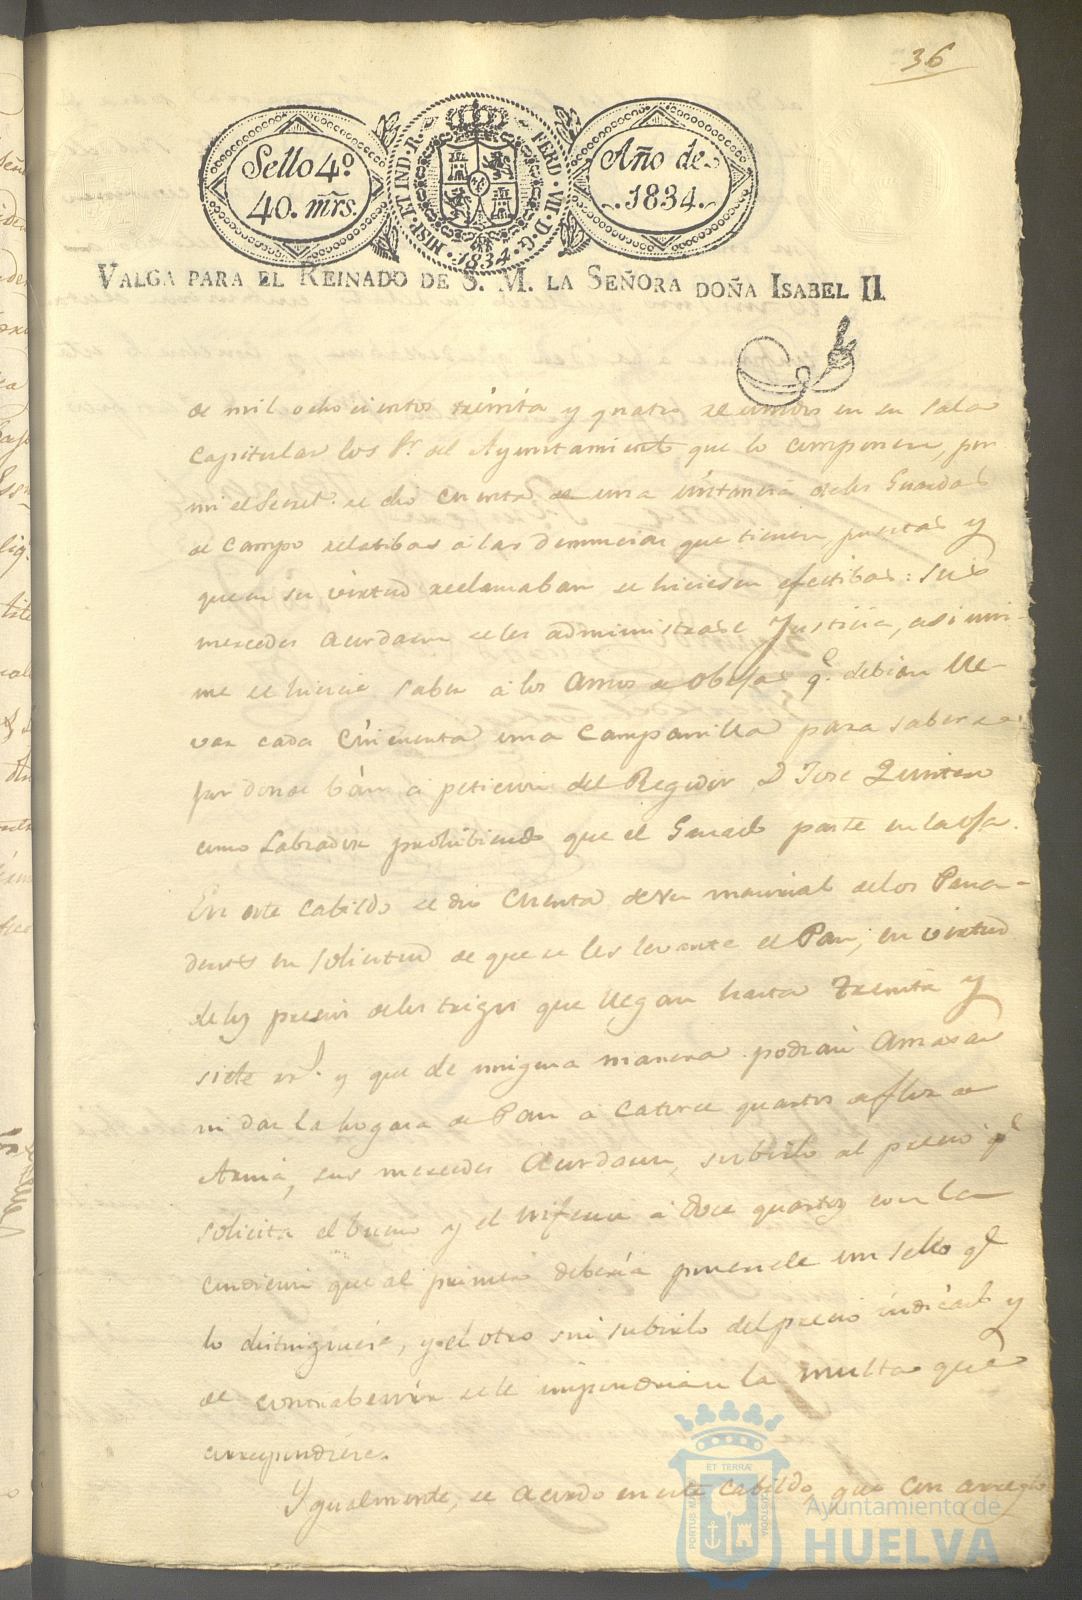 36
Sello 4º.
40. mrs.
HISP. ET IND. R. FERD. VII. D. G. 1834
Año de
1834.
VALGA PARA EL REINADO DE S. M. LA SEÑORA DOÑA ISABEL II.
de mil ocho cientos treinta y quatro reunidos en su sala
Capitular los Sr. del Ayuntamiento que lo componen, por
mi el Secret. se dio cuenta de una instancia delos Guardas
de Campo relatibas a las denuncias que tienen puestas y
que en su virtud reclamaban se hiciesen efectibas: sus
mercedes acordaron seles administrase Justicia, asi mis-
mo se hiciese saber a los Amos de Obejas q.e debian lle-
var cada Cincuenta una Campanilla para saberse
por donde bán a peticion del Regidor D Jose Quintero
como Labrador prohibiendo que el Ganado paste en
En este Cabildo se dio Cuenta de un memorial delos Pana-
deros en solicitud de que se les levante el Pan, en virtud
de los precios delos trigos que llegan hasta treinta y
siete rs. y que de ninguna manera podian Amasar
ni dar la hogasa de Pan a Catorce quartos de flor de
Arina, sus mercedes Acordaron, subirlo al precio q.e
solicita el bueno y el inferior a doce quartos con la
condicion que al primero deberia ponersele un sello q.e
lo distinguiese, y el otro sin subirlo del precio indicado y
de contrabenir sele impondrian la multa que
correspondiere.
Ygualmente, se acordo en este Cabildo, que con arreglo
ET TERRÆ
PORTUS MARIS
CUSTODIA
Ayuntamiento de
HUELVA